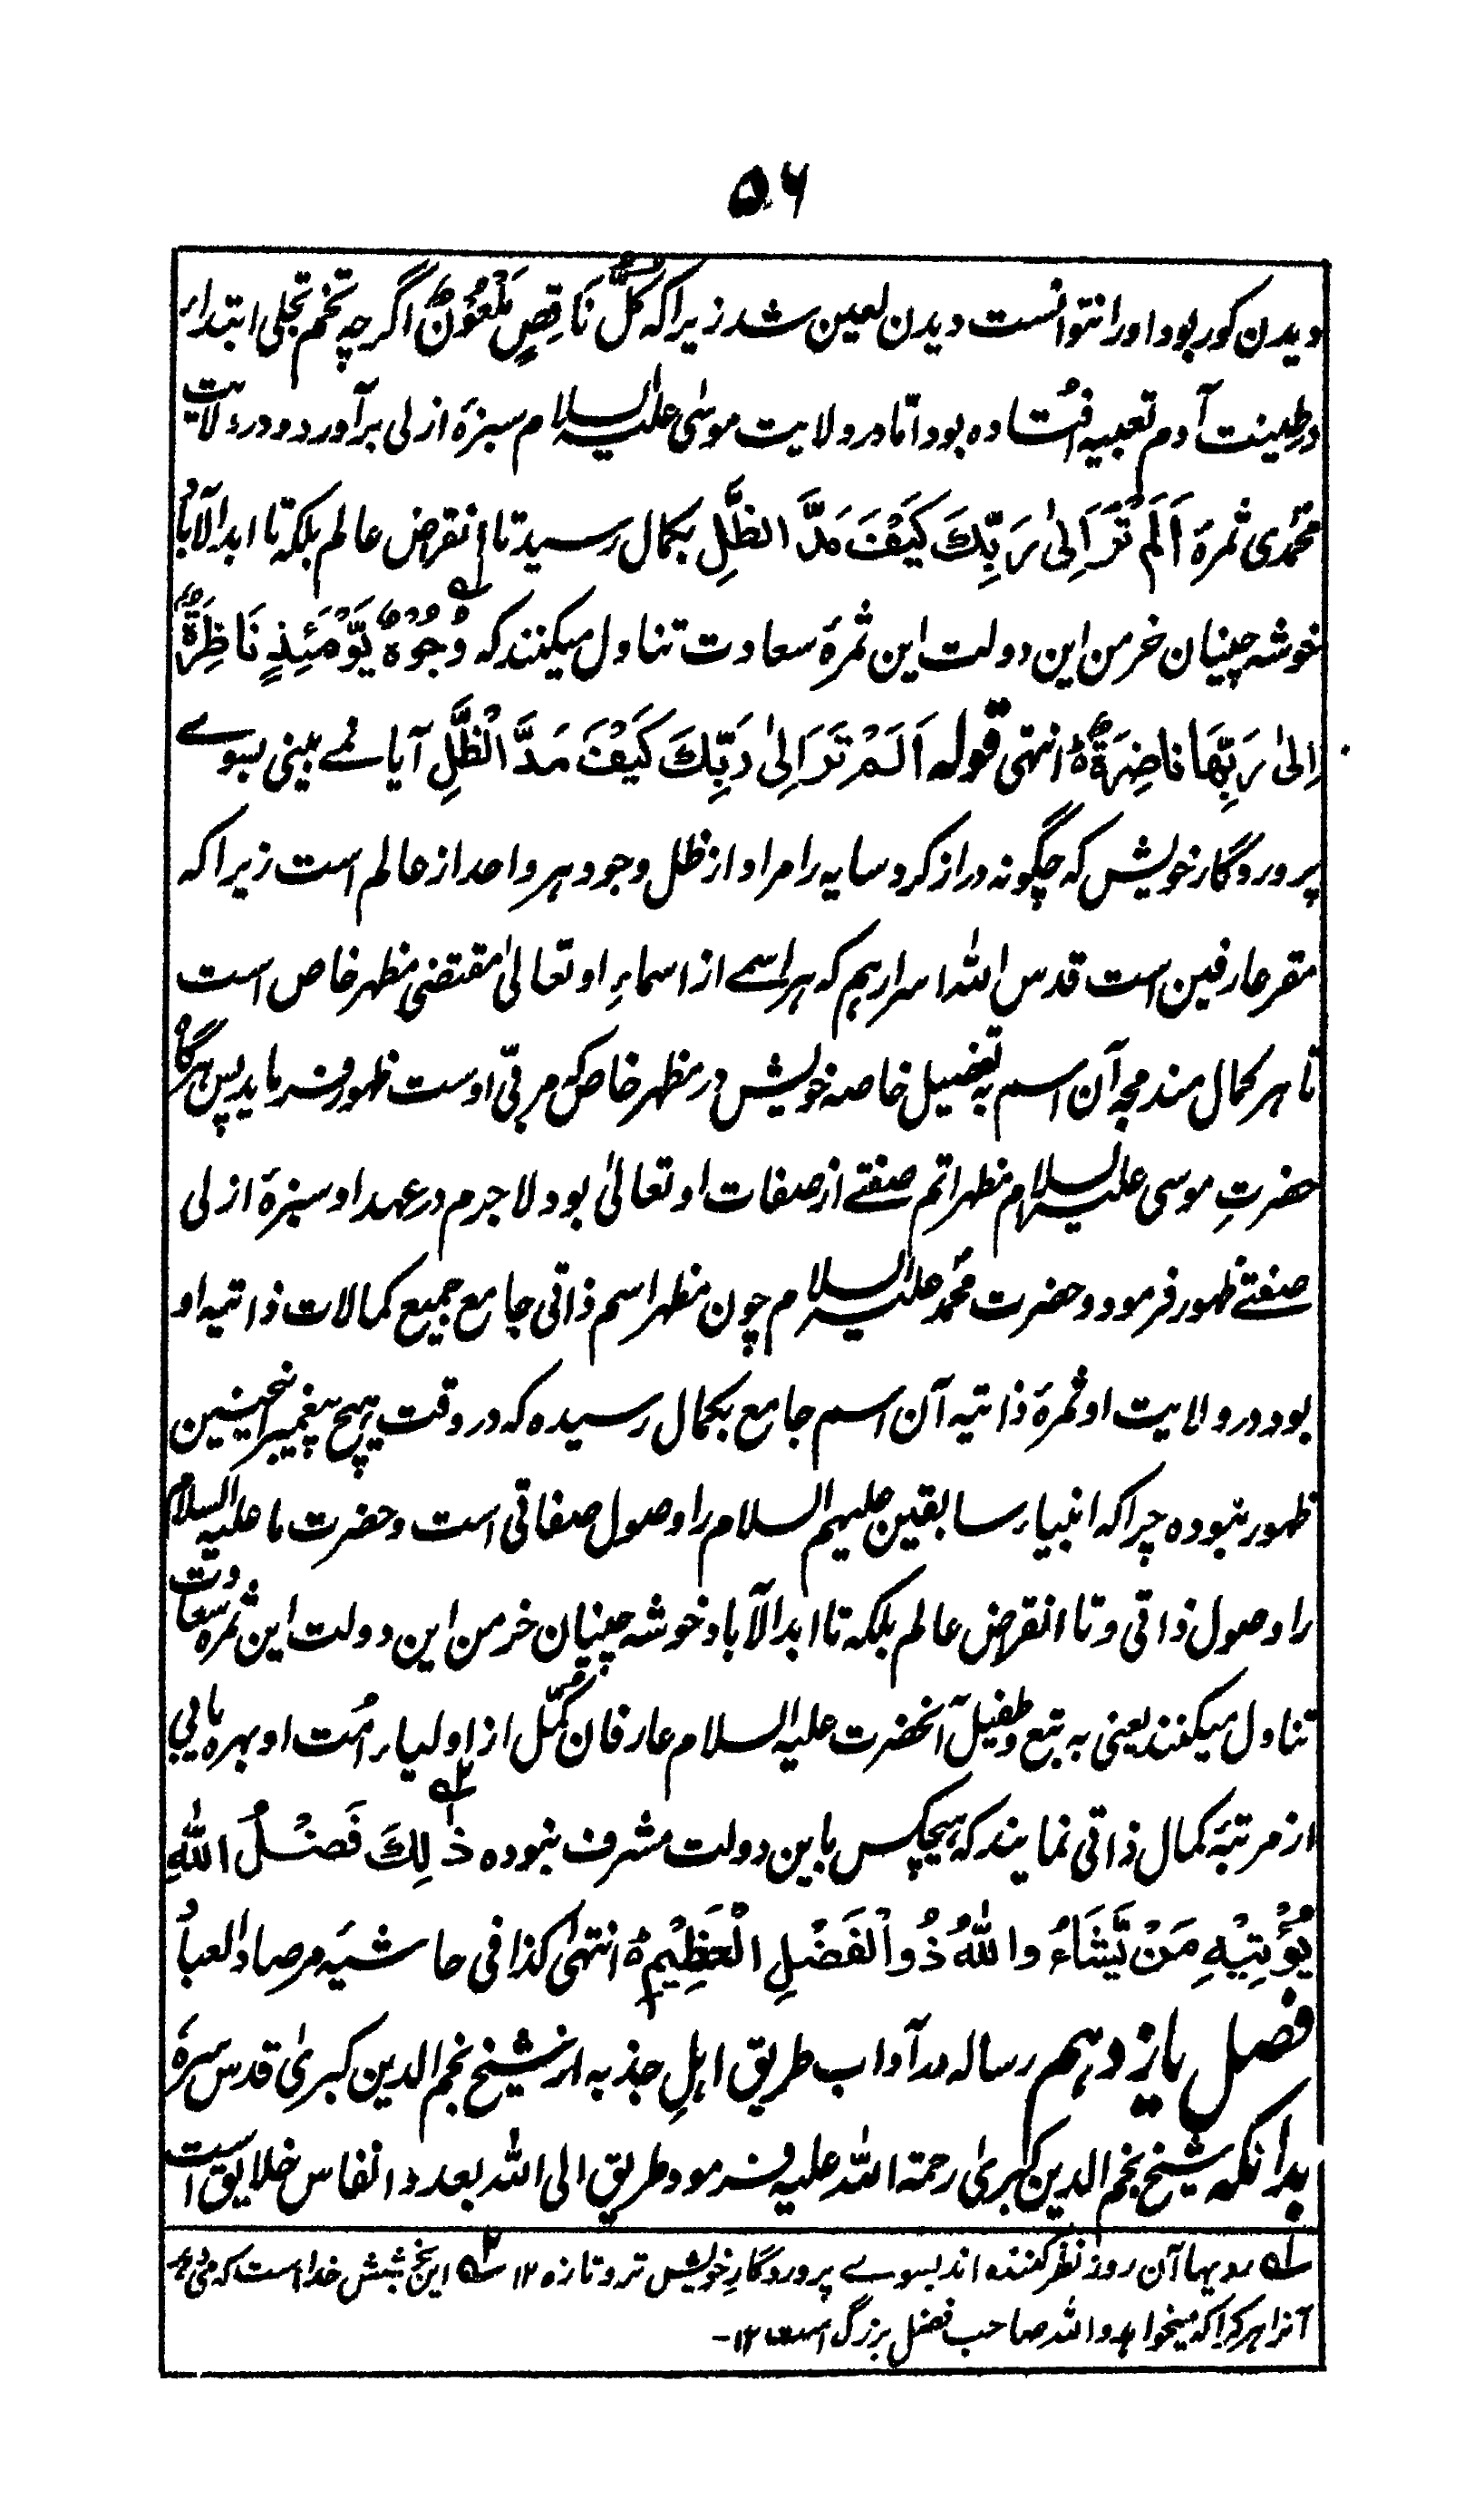 ۵۶
دیدن کور بود او را نتوانست دیدن لعین شد زیرا که کُلُّ نَاقِصٍ مَلْعُوْنٌ اگرچہ تخم تجلی ابتداء
در طینت آدم تعبیہ افتاده بود اما در ولایت موسیٰ علیہ السلام سبزۂ ازلی برآورد و در ولایت
محمدی ثمرۂ اَلَمْ تَرَ اِلیٰ رَبِّكَ كَيْفَ مَدَّ الظِّلِ بکمال رسید تا انقرض عالم بلکہ تا ابد الآباد
خوشہ چینان خرمن این دولت این ثمرۂ سعادت تناول میکنند کہ وُجُوْهٌ يَّوْمَئِذٍ نَاظِرَةٌ
اِلیٰ رَبِّهَا نَاضِرَةٌ انتهی قولہ اَلَمْ تَرَ اِلیٰ رَبِّكَ كَيْفَ مَدَّ الْظِّلَ آیا نمے بینی بسوے
پروردگار خویش کہ چگونہ دراز کرد سایہ را مراد از ظل وجود ہر واحد از عالم است زیرا کہ
مقر عارفین است قدس اللہ اسرارہم کہ ہر اسمے از اسماء او تعالیٰ مقتضی مظہر خاص است
تا ہر کمال مندمجہ آن اسم بہ تفصیل خاصہ خویش در مظہر خاص کہ مربّی اوست ظہور فرماید پس ہرگاہ
حضرتِ موسی علیہ السلام مظہر اتم صفتے از صفات او تعالیٰ بود لاجرم در عہد او سبزۂ ازلی
صفتے ظہور فرمود و حضرت محمد علیہ السلام چون مظہر اسم ذاتی جامع جمیع کمالات ذاتیہ او
بود در ولایت او ثمرۂ ذاتیہ آن اسم جامع بکمال رسیده کہ در وقت ہیچ پیغمبر انچنین
ظہور نبوده چرا کہ انبیاء سابقین علیہم السلام را وصول صفاتی است و حضرت ما علیہ السلام
را وصول ذاتی و تا انقرض عالم بلکہ تا ابد الآباد خوشہ چینان خرمن این دولت این ثمرۂ سعادت
تناول میکنند یعنی بہ تبع و طفیل آنحضرت علیہ السلام عارفان کُمَّل از اولیاء امت او بہره یابی
از مرتبۂ کمال ذاتی نمایند کہ ہیچکس باین دولت مشرف نبوده ذٰلِكَ فَضْلُ اللهِ
يُؤْتِيْهِ مَنْ يَّشَاءُ وَاللهُ ذُو الْفَضْلِ الْعَظِيْمِ انتهیٰ کذا فی حاشیۂ مرصاد العباد
فصل یازدہم رسالہ در آداب طریق اہلِ جذبہ از شیخ نجم الدین کبریٰ قدس سرہٗ
بدانکہ شیخ نجم الدین کبریٰ رحمۃ اللہ علیہ فرمود طریق الی اللہ بعدد انفاس خلایق است
۱؎ رویہا آن روز نظر کنندہ اند بسوے پروردگارِ خویش تر و تازہ ۱۲ ۲؎ این بخشش خدا است کہ می دہد
آنرا ہر کرا کہ میخواہد واللہ صاحب فضل بزرگ است ۱۲-